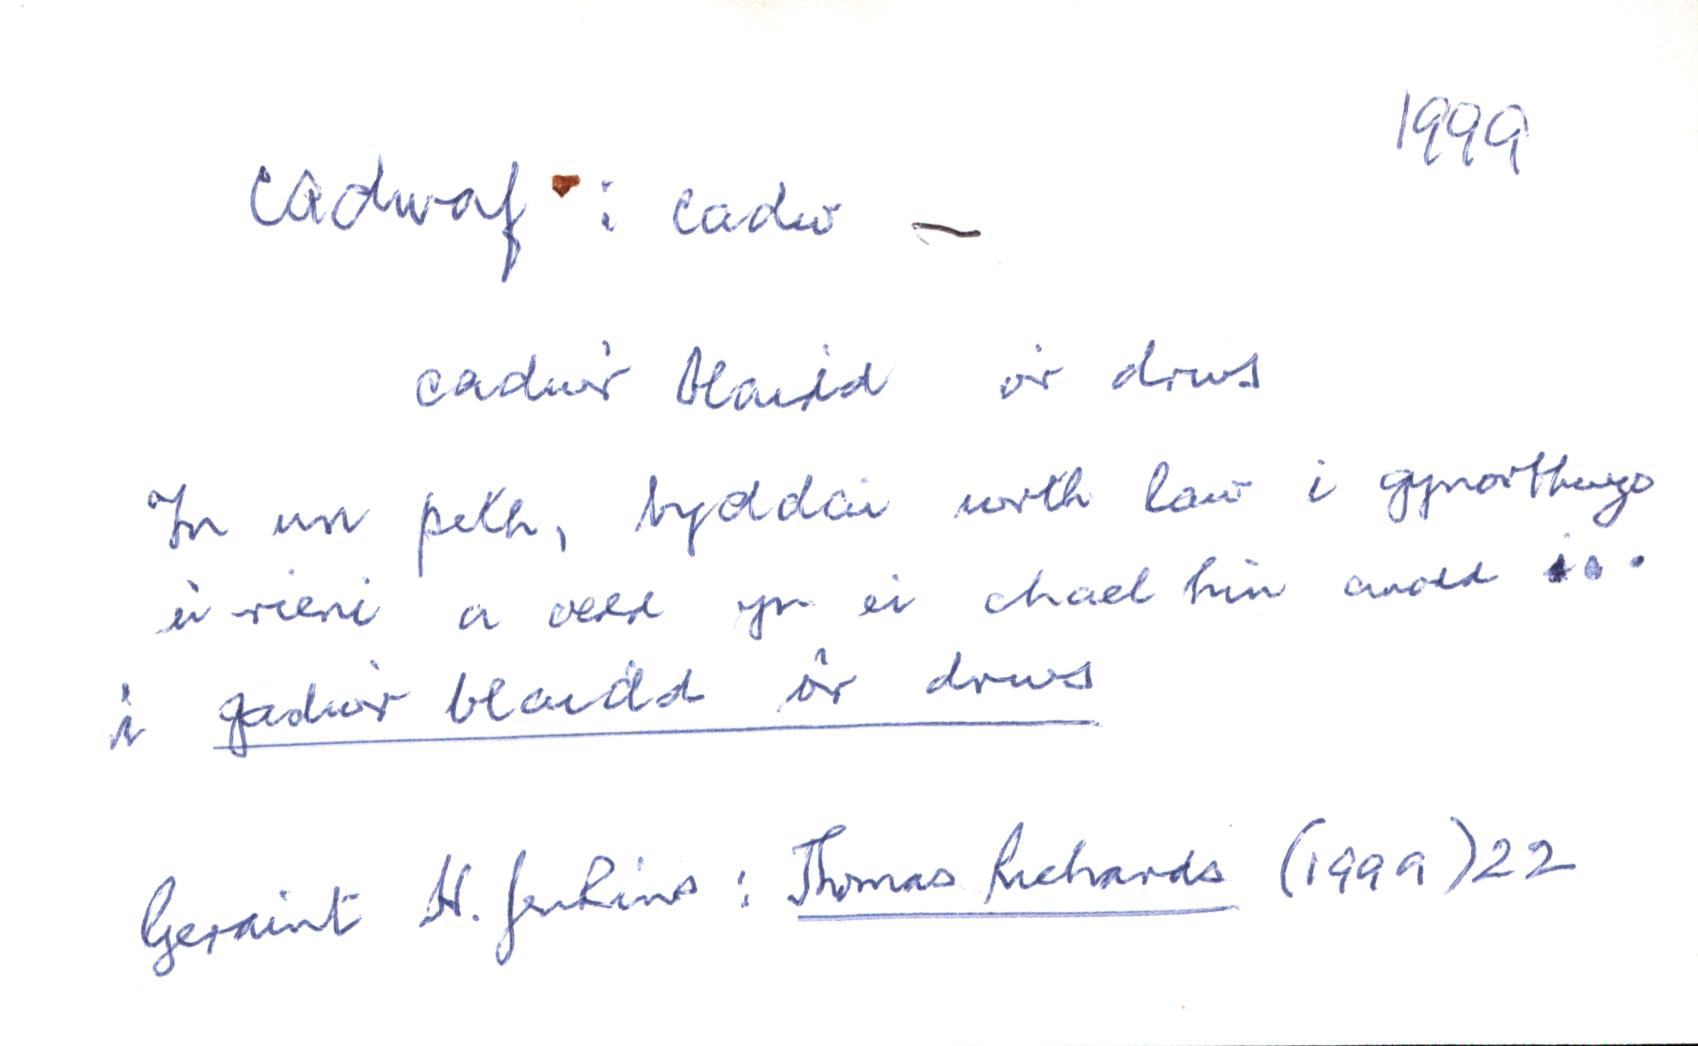 1999
cadwaf : cadw —
cadw'r blaidd o'r drws
Yn un peth, byddai wrth law i gynorthwyo
ei rieni a oedd yn ei chael hi'n anodd ...
i gadw'r blaidd o'r drws
Geraint H. Jenkins : Thomas Richards (1999) 22